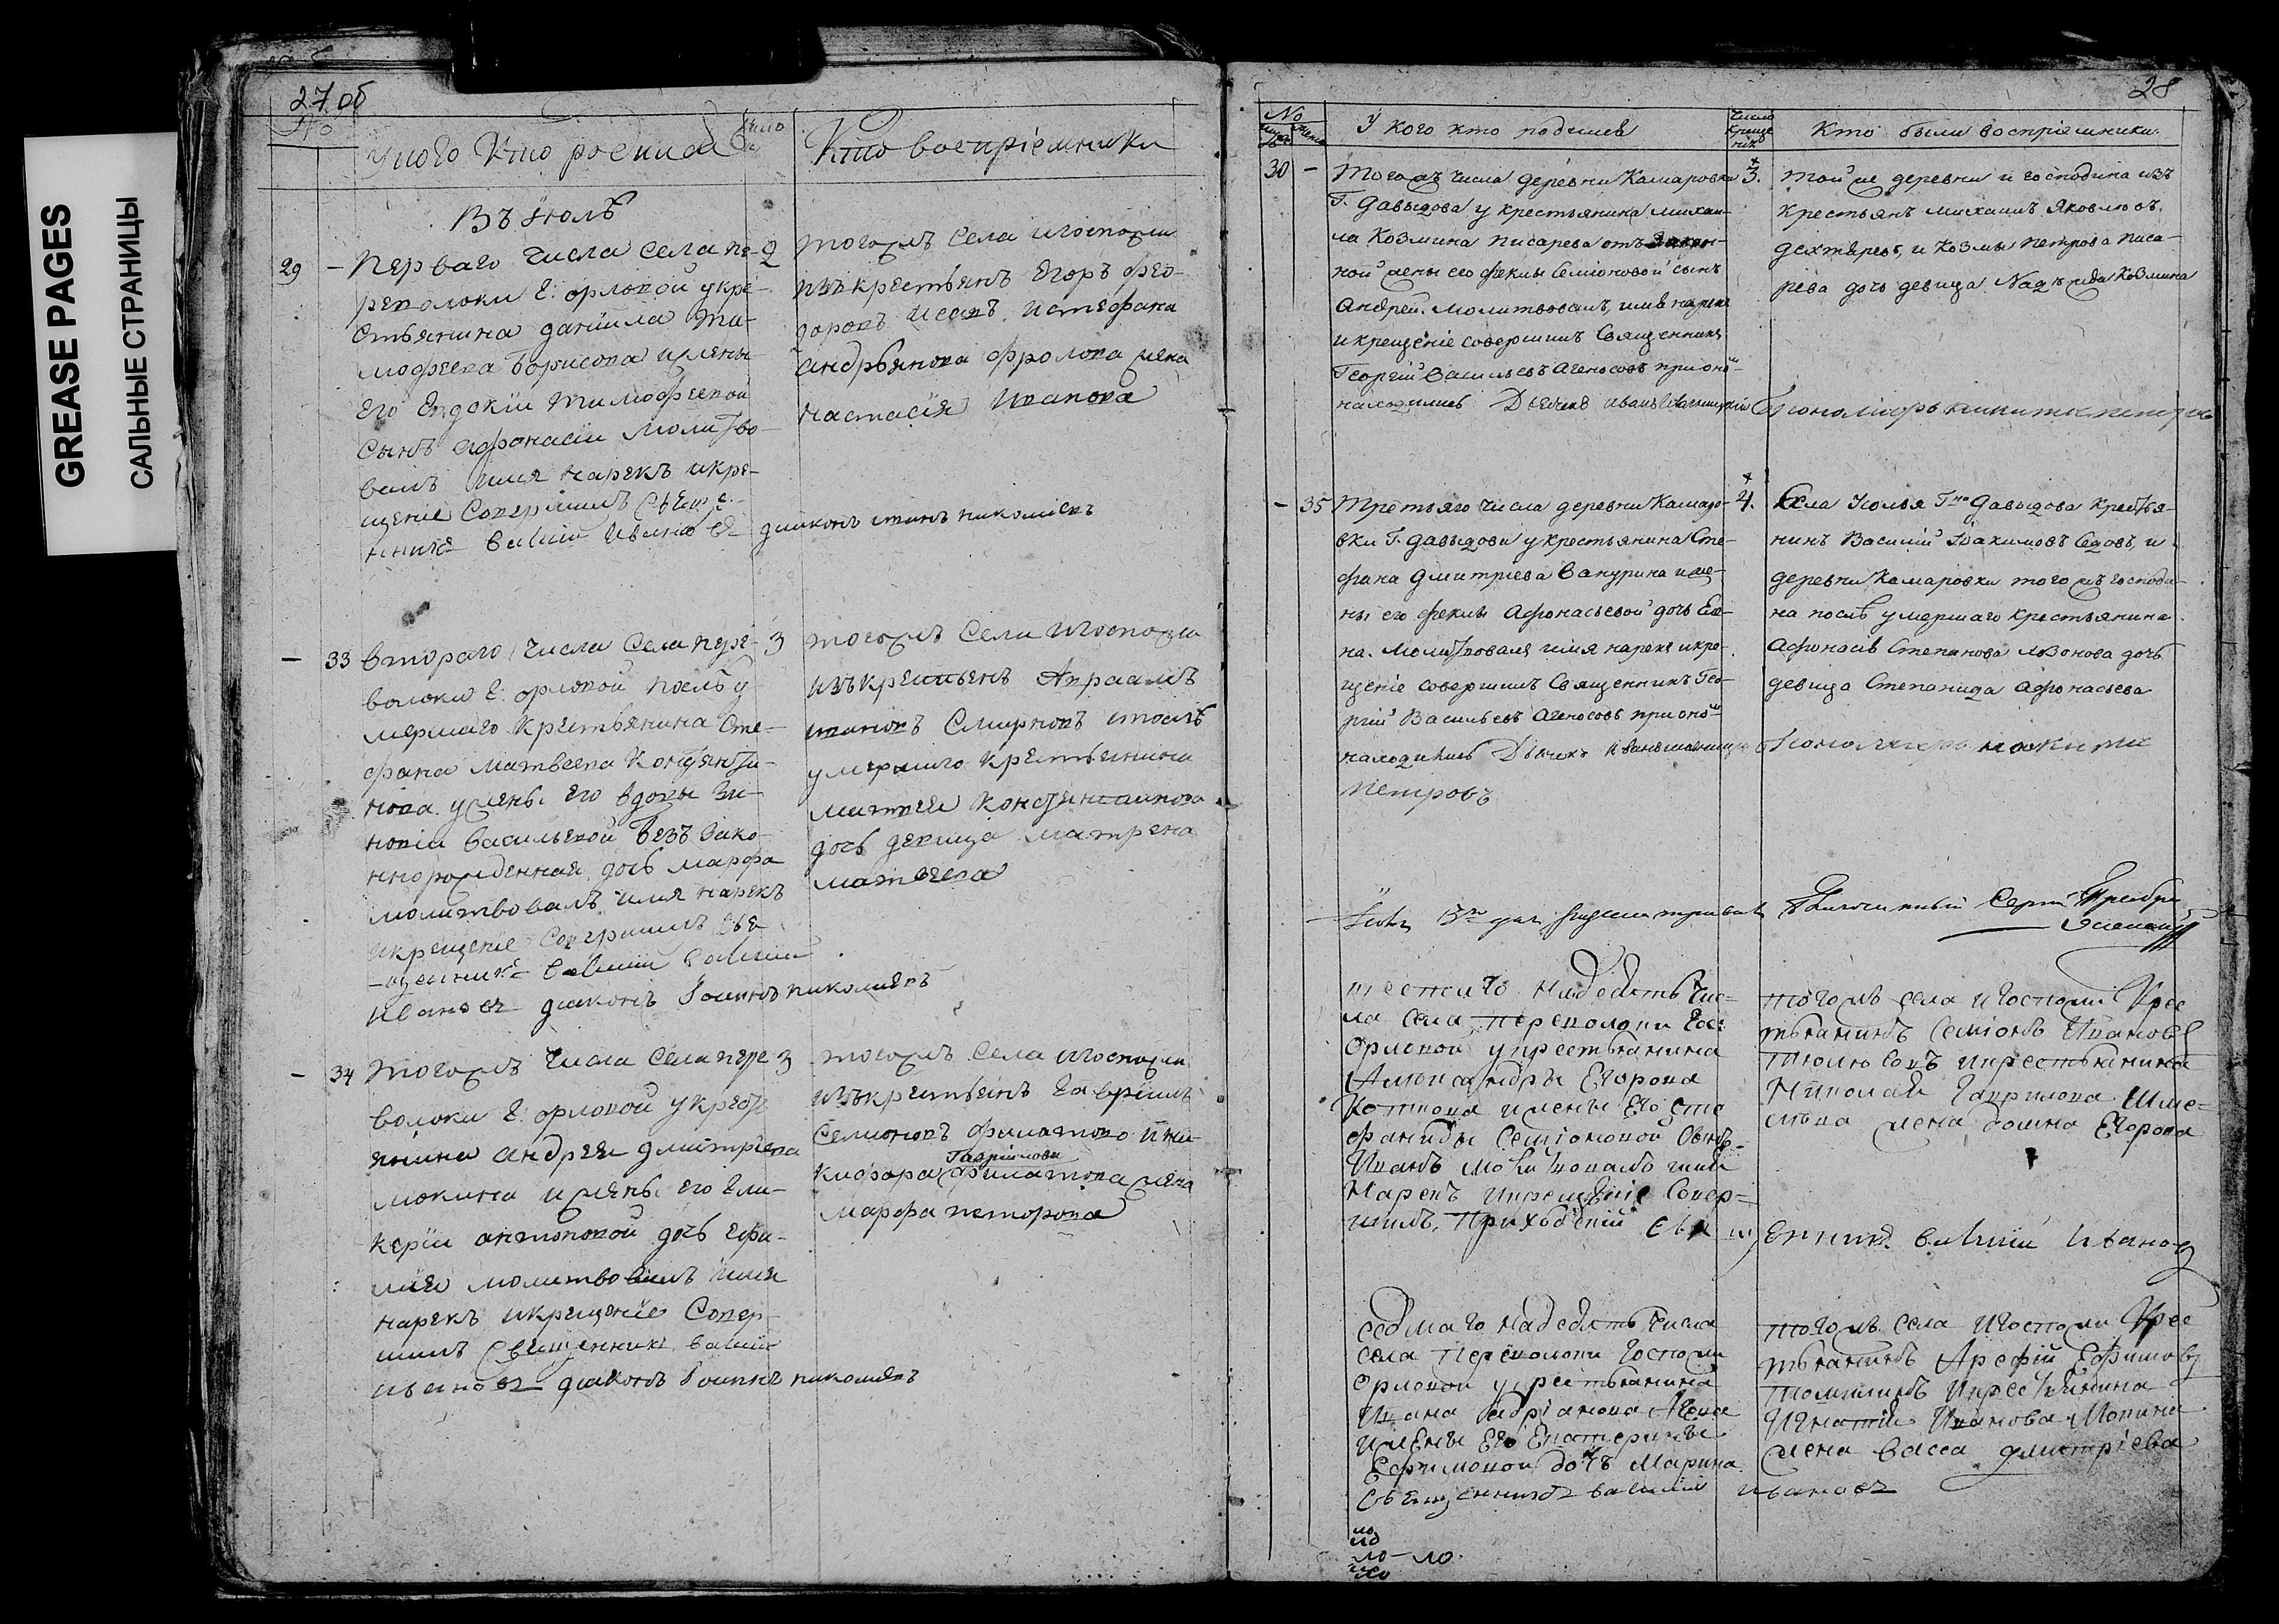 GREASE PAGES
САЛЬНЫЕ СТРАНИЦЫ
27 об
№
У кого кто родился
Число
Кто воспрiемники
Въ Iюлѣ
29 - Перваго числа села пе-
револоки Г: орловой у кре-
стьянина данiила ти-
мофеева борисова и жены
Его Евдокiи тимофеевой
Сынъ афонасiи молитво-
валъ имя нарекъ и кре-
щенiе Совершилъ Свяще-
нникъ
2
тогожъ Села и госпожи
изъ крестьянъ Егоръ фео-
доровъ и стефана
андрѣянова фролова жена
настасiя Иванова
- 33 втораго числа Села пере-
волоки Г: орловой послѣ у
мершаго крестьянина Сте-
фана матвеева Констянти-
нова у жены Его вдовы Зи-
новiи васильевой беззако-
ннорожденная дочь марфа
молитвовалъ имя нарекъ
и крещенiе Совершилъ Свя
-щенникъ
Ивановъ дiяконъ
3
тогожъ Села и госпожи
изъ крестьянъ Авраамъ
ивановъ Смирновъ и послѣ
умершаго крестьянина
матвея Констянтинова
дочь девица матрена
матвеева
- 34 тогожъ числа Села пере
волоки Г: орловой у кресть
янина андрея дмитрiева
мокина и жены его Гли-
керiи антоновой дочь Ефи-
мiя молитвовалъ имя
нарекъ и крещенiе Совер-
шилъ Священникъ
Ивановъ дiяконъ
3
тогожъ Села и госпожи
изъ крестьянъ Гаврiилъ
Семионовъ филатовъ и ни-
Гаврилова
кифора филатова жена
марфа петрова
28
№
У кого кто родился
Число крещенiя
Кто были воспрiемники
30 - Тогожъ числа деревни Камаровки
Г. Давыдова у крестьянина михаи-
ла Козмина писарева отъ закон-
ной жены его феклы Семiоновой сынъ
Андрей. молитвовалъ, имя нарекъ
и крещенiе совершилъ Священникъ
Георгiй Васильевъ Агеносовъ при ономъ
находились Дьячекъ
пономарь никита петровъ
3.
той же деревни и господина изъ
крестьянъ михаилъ Яковлевъ
дехтяревъ, и Козмы петрова писа-
рева дочь девица Надѣжда Козмина
- 35 Третьяго числа деревни Камаро-
вки Г. Давыдова у крестьянина Сте-
фана Дмитрiева Вакурина и же-
ны его феклы Афонасьевой дочь Ев-
на. молитвовалъ имя нарекъ и кре-
щенiе совершилъ Священникъ Гео-
ргiй Васильевъ Агеносовъ при ономъ
находились Дьячекъ
пономарь никита
Петровъ
4.
Села Усолья Г-на Давыдова крестья-
нинъ Василiй Iвакимовъ Седовъ, и
деревни Камаровки тогожъ господи-
на послѣ умершаго крестьянина
Афонасья Степанова дочь
девица Степанида Афонасьева
Благочинный Сергiй Преобра
женскiй
третьяго надесять чис-
ла села Переволоки Гос:
Орловой у крестьянина
Александры Егорова
Коткова и жены Его сте
фаниды Семiоновой Сынъ
Иванъ молитвовалъ имя
Нарекъ и крещенiе Совер-
шилъ, Приходскiй Священникъ
тогожъ села и Госпожи Крес
тьянинъ Семiонъ Ивановъ
и крестьянина
Николая Гаврилова Шме-
лева жена Домна Егорова
седмаго надесять числа
села Переволоки Госпожи
Орловой у крестьянина
Ивана Адрiанова
и жены Его Екатерины
Ефимовой дочь Марина
Священникъ василiй Ивановъ
тогожъ села и Госпожи Крес
тьянинъ Арефiй Ефимовъ
и крестьянина
Игнатiя Иванова Мокина
жена васса Дмитрiева